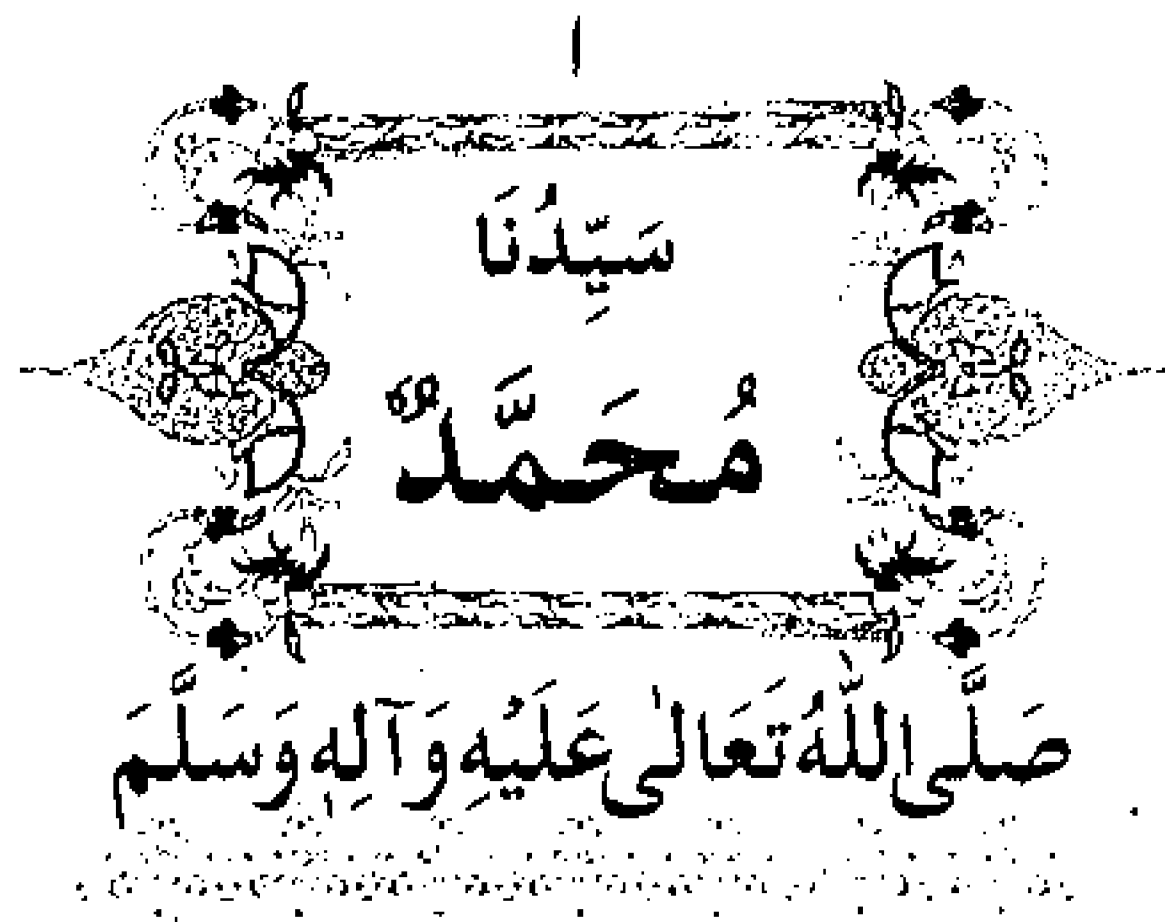 ا
سَيِّدُنَا
مُحَمَّدٌ
صَلَّى اللّٰهُ تَعَالٰى عَلَيْهِ وَآلِهٖ وَسَلَّمَ